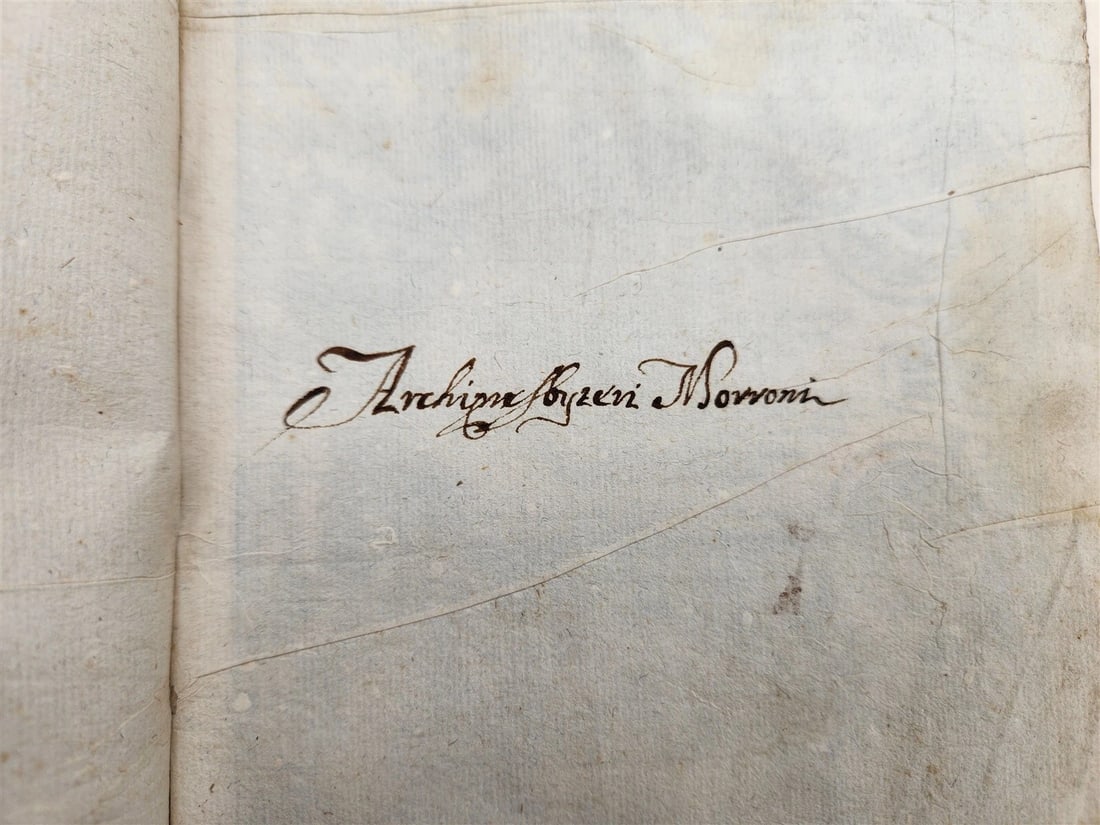 Archipresbyteri Morroni